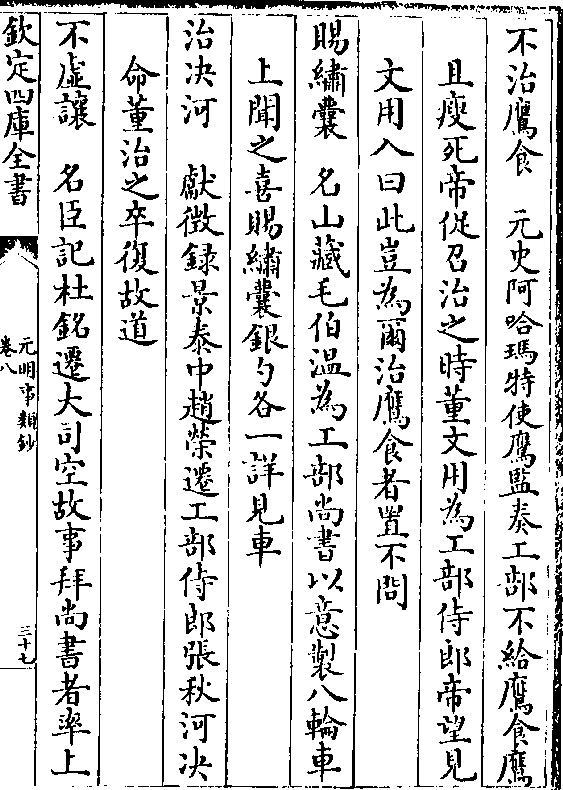 不治鷹食　元史阿哈瑪特使鷹監奏工部不給鷹食鷹
且瘦死帝促召治之時董文用為工部侍郎帝望見
文用入曰此豈為爾治鷹食者置不問
賜繡囊　名山藏毛伯温為工部尚書以意製八輪車
上聞之喜賜繡囊銀勺各一詳見車
治决河　獻徵録景泰中趙榮遷工部侍郎張秋河决
命董治之卒復故道
不虚讓　名臣記杜銘遷大司空故事拜尚書者率上
欽定四庫全書
元明事類鈔
卷八
三十七